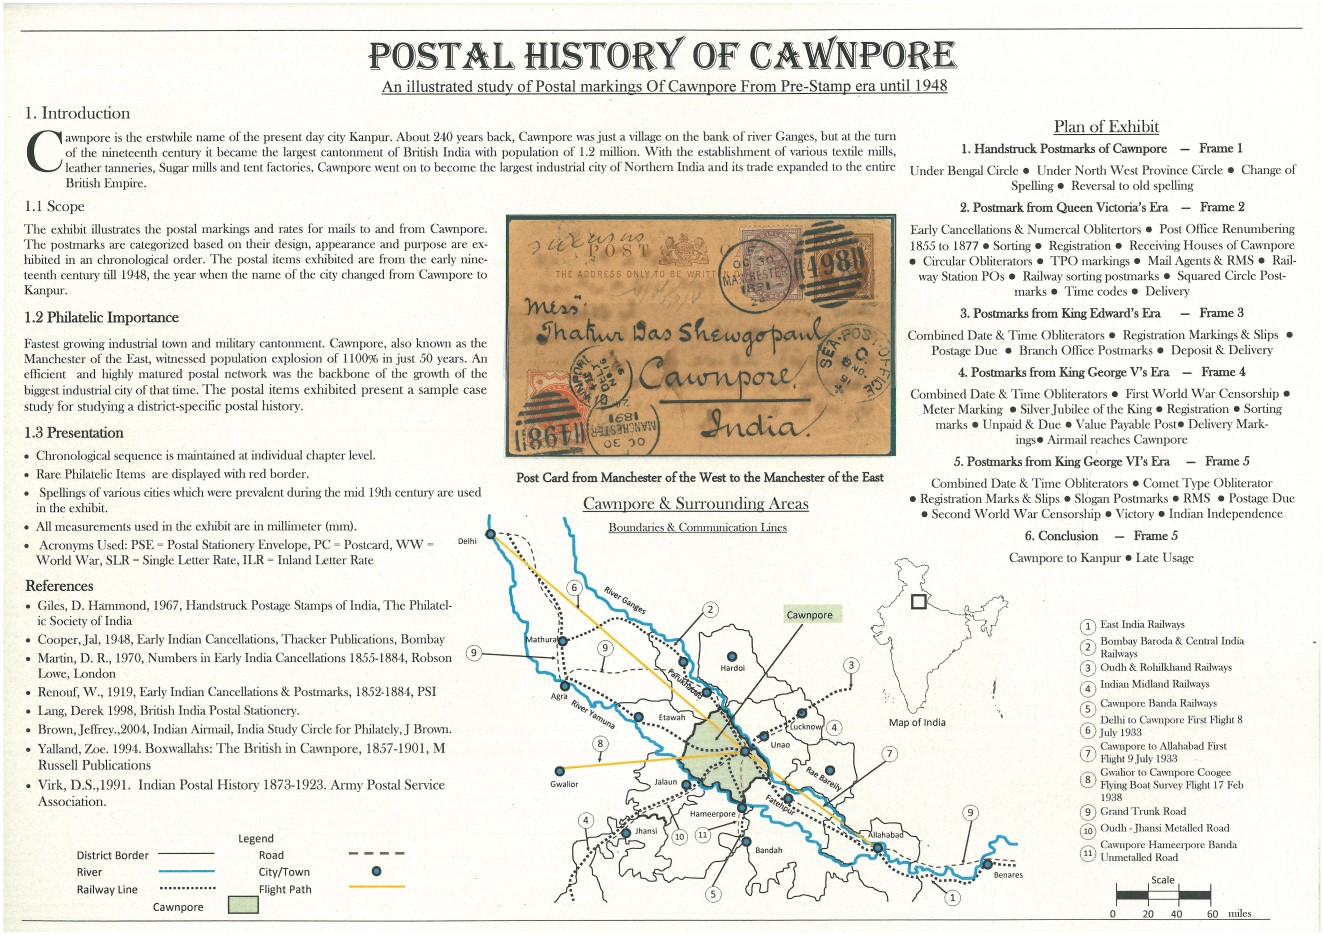 POSTAL HISTORY OF CAWNPORE
An illustrated study of Postal markings Of Cawnpore From Pre-Stamp era until 1948
1. Introduction
Cawnpore is the erstwhile name of the present day city Kanpur. About 240 years back, Cawnpore was just a village on the bank of river Ganges, but at the turn
of the nineteenth century it became the largest cantonment of British India with population of 1.2 million. With the establishment of various textile mills,
leather tanneries, Sugar mills and tent factories, Cawnpore went on to become the largest industrial city of Northern India and its trade expanded to the entire
British Empire.
1.1 Scope
The exhibit illustrates the postal markings and rates for mails to and from Cawnpore.
The postmarks are categorized based on their design, appearance and purpose are ex-
hibited in an chronological order. The postal items exhibited are from the early nine-
teenth century till 1948, the year when the name of the city changed from Cawnpore to
Kanpur.
1.2 Philatelic Importance
Fastest growing industrial town and military cantonment. Cawnpore, also known as the
Manchester of the East, witnessed population explosion of 1100% in just 50 years. An
efficient and highly matured postal network was the backbone of the growth of the
biggest industrial city of that time. The postal items exhibited present a sample case
study for studying a district-specific postal history.
1.3 Presentation
• Chronological sequence is maintained at individual chapter level.
• Rare Philatelic Items are displayed with red border.
• Spellings of various cities which were prevalent during the mid 19th century are used
in the exhibit.
• All measurements used in the exhibit are in millimeter (mm).
• Acronyms Used: PSE = Postal Stationery Envelope, PC = Postcard, WW =
World War, SLR = Single Letter Rate, ILR = Inland Letter Rate
References
• Giles, D. Hammond, 1967, Handstruck Postage Stamps of India, The Philatel-
ic Society of India
• Cooper, Jal, 1948, Early Indian Cancellations, Thacker Publications, Bombay
• Martin, D. R., 1970, Numbers in Early India Cancellations 1855-1884, Robson
Lowe, London
• Renouf, W., 1919, Early Indian Cancellations & Postmarks, 1852-1884, PSI
• Lang, Derek 1998, British India Postal Stationery.
• Brown, Jeffrey.,2004, Indian Airmail, India Study Circle for Philately, J Brown.
• Yalland, Zoe. 1994. Boxwallahs: The British in Cawnpore, 1857-1901, M
Russell Publications
• Virk, D.S.,1991. Indian Postal History 1873-1923. Army Postal Service
Association.
Legend
District Border
Road
River
City/Town
Railway Line
Flight Path
Cawnpore
POST
THE ADDRESS ONLY TO BE WRITT
MANCHESTER
1891
498
Messrs
Thakur Das Shewgopaul
Cawnpore.
India.
SEA-POST-OFFICE
498
MANCHESTER
OC 30
Post Card from Manchester of the West to the Manchester of the East
Cawnpore & Surrounding Areas
Boundaries & Communication Lines
Delhi
River Ganges
6
2
Cawnpore
Mathura
9
9
Hardoi
3
Farukhabad
Agra
River Yamuna
Etawah
Lucknow
4
Unao
8
7
Gwalior
Jalaun
Rae Bareilly
Fatehpur
Hameerpore
4
Jhansi
10
11
Allahabad
9
Bandah
Benares
5
1
Map of India
Plan of Exhibit
1. Handstruck Postmarks of Cawnpore — Frame 1
Under Bengal Circle ● Under North West Province Circle ● Change of
Spelling ● Reversal to old spelling
2. Postmark from Queen Victoria's Era — Frame 2
Early Cancellations & Numercal Oblitertors ● Post Office Renumbering
1855 to 1877 ● Sorting ● Registration ● Receiving Houses of Cawnpore
● Circular Obliterators ● TPO markings ● Mail Agents & RMS ● Rail-
way Station POs ● Railway sorting postmarks ● Squared Circle Post-
marks ● Time codes ● Delivery
3. Postmarks from King Edward's Era — Frame 3
Combined Date & Time Obliterators ● Registration Markings & Slips ●
Postage Due ● Branch Office Postmarks ● Deposit & Delivery
4. Postmarks from King George V's Era — Frame 4
Combined Date & Time Obliterators ● First World War Censorship ●
Meter Marking ● Silver Jubilee of the King ● Registration ● Sorting
marks ● Unpaid & Due ● Value Payable Post● Delivery Mark-
ings● Airmail reaches Cawnpore
5. Postmarks from King George VI's Era — Frame 5
Combined Date & Time Obliterators ● Comet Type Obliterator
● Registration Marks & Slips ● Slogan Postmarks ● RMS ● Postage Due
● Second World War Censorship ● Victory ● Indian Independence
6. Conclusion — Frame 5
Cawnpore to Kanpur ● Late Usage
1 East India Railways
2 Bombay Baroda & Central India
Railways
3 Oudh & Rohilkhand Railways
4 Indian Midland Railways
5 Cawnpore Banda Railways
6 Delhi to Cawnpore First Flight 8
July 1933
7 Cawnpore to Allahabad First
Flight 9 July 1933
8 Gwalior to Cawnpore Coogee
Flying Boat Survey Flight 17 Feb
1938
9 Grand Trunk Road
10 Oudh - Jhansi Metalled Road
11 Cawnpore Hameerpore Banda
Unmetalled Road
Scale
0 20 40 60 miles